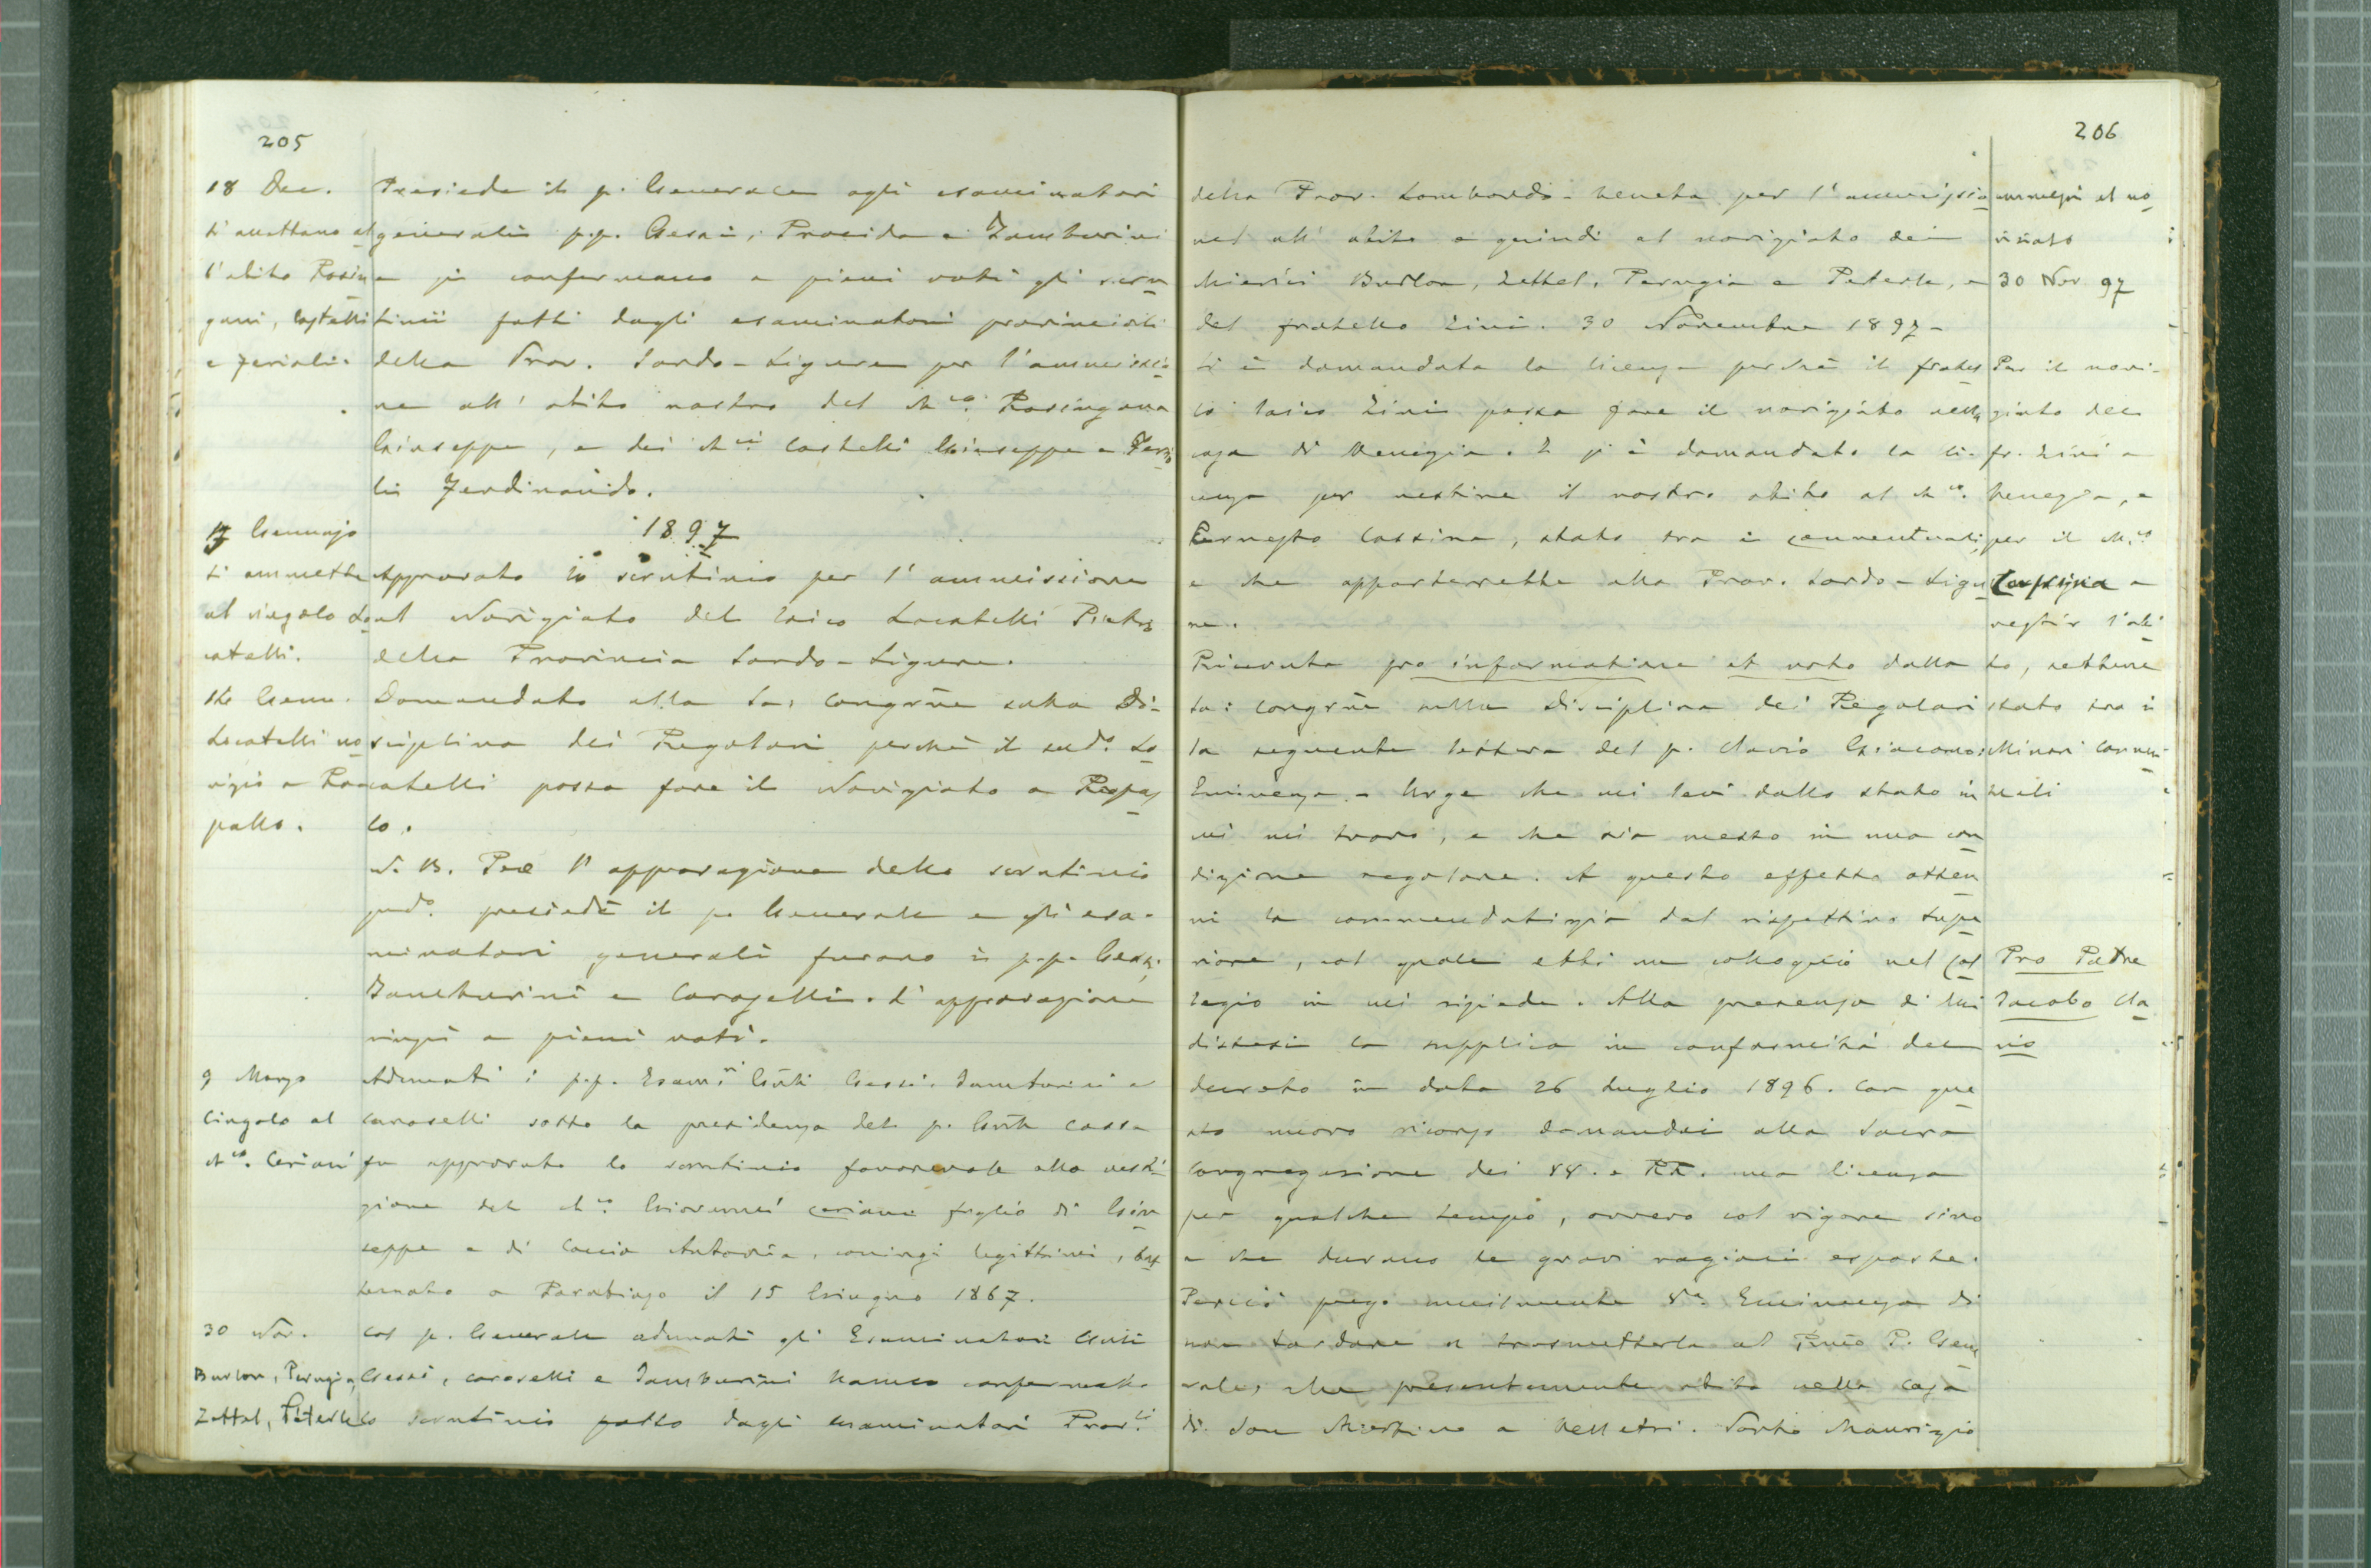 205
18 Dec.
Si amettono al
l'abito Rosin
gani, Castelli
e Feriali.
Presiede il p. Generale agli esaminatori
generali p.p. Gessi, Procida e Zamburini
e si confermano a pieni voti gli scru
tinii fatti dagli esaminatori provinciali
della Prov. Sardo-Ligure per l'ammissio
ne all' abito nostro del Ch.co Rosingana
Giuseppe, e dei Ch.ci Castelli Giuseppe e Feria
li Ferdinando.
1897
17 Gennajo
Si ammette
al singolo Lo
catelli.
Approvato lo scrutinio per l'ammissione
al Novigiato del laico Locatelli Pietro
della Provincia Sardo-Ligure.
Genn.
Locatelli no
vizio a Ra
pallo.
Domandato alla Sa: Congrñe sulla Di-
sciplina dei Regolari perchè il sud.o Lo
catelli possa fare il Novigiato a Rapal
lo.
N. B. Per l'approvazione dello scrutinio
sud.o presiedè il p. Generale e gli esa-
minatori generali furono i p.p. Gessi,
Zamburini e Caroselli. L'approvazione
a pieni voti.
9 Marzo
Cingolo al
Ch.co Ceriani
Adunati i p.p. Esam.ri Gñli Gessi, Zamburini e
Caroselli sotto la presidenza del p. Gñle Cassa
fu approvato lo scrutinio favorevole alla vesti
zione del Ch.co Giovanni Ceriani figlio di Giu
seppe e di Caccia Antonia, coniugi legittimi, bat
tezzato a Parabiago il 15 Giugno 1867.
30 Nov.
Burlon, Perugia,
Zettel, Peterle
Col p. Generale adunati gli Esaminatori Gñli
Gessi, Caroselli e Zamburini hanno confermato
lo scrutinio fatto dagli esaminatori Prov.li
206
della Prov. Lombardo-Veneta per l'ammissio
ne all' abito e quindi al novigiato dei
Chierici Burlon, Zettel, Perugia e Peterle, e
del fratello Zini. 30 Novembre 1897-
ammessi al no
viziato
30 Nov 97
Si è domandata la licenza perchè il fratel
lo laico Zini possa fare il novigiato nella
casa di Venezia. E si è domandata la li-
cenza per vestire il nostro abito al Ch.co
Ernesto Cassina, stato tra i conventuali,
e che apparterrebbe alla Prov. Sardo-Ligu
re.
Per il novi-
giato del
fr. Zini a
Venezia, e
per il Ch.co
Cassina a
vestir l'abi
to, sebbene
stato tra i
Minori Conven
tuali
Ricevuta pro informatione et voto dalla
Sa: Congrñe sulla Disciplina dei Regolari
la seguente lettera del p. Clavio Giacomo:
Eminenza - Urge che mi levi dallo stato in
cui mi trovo, e che sia messo in una con
dizione regolare. A questo effetto otten
ni la commendatizia dal rispettivo Supe
riore, col quale ebbi un colloquio nel Col
legio in cui risiede. Alla presenza di lui
distesi la supplica in conformità del
decreto in data 26 Luglio 1896. Con que
sto nuovo ricorso domandai alla Sacra
Congregazione dei VV. e RR. una licenza
per qualche tempo, ovvero col vigore sino
a che durano le gravi ragioni esposte.
Perciò prego umilmente V.a Eminenza di
non tardare a trasmetterla al Rmo P. Gene
rale, che presentemente abita nella casa
di San Martino a Velletri. Porto Maurizio
Pro Patre
Jacobo Cla
vio